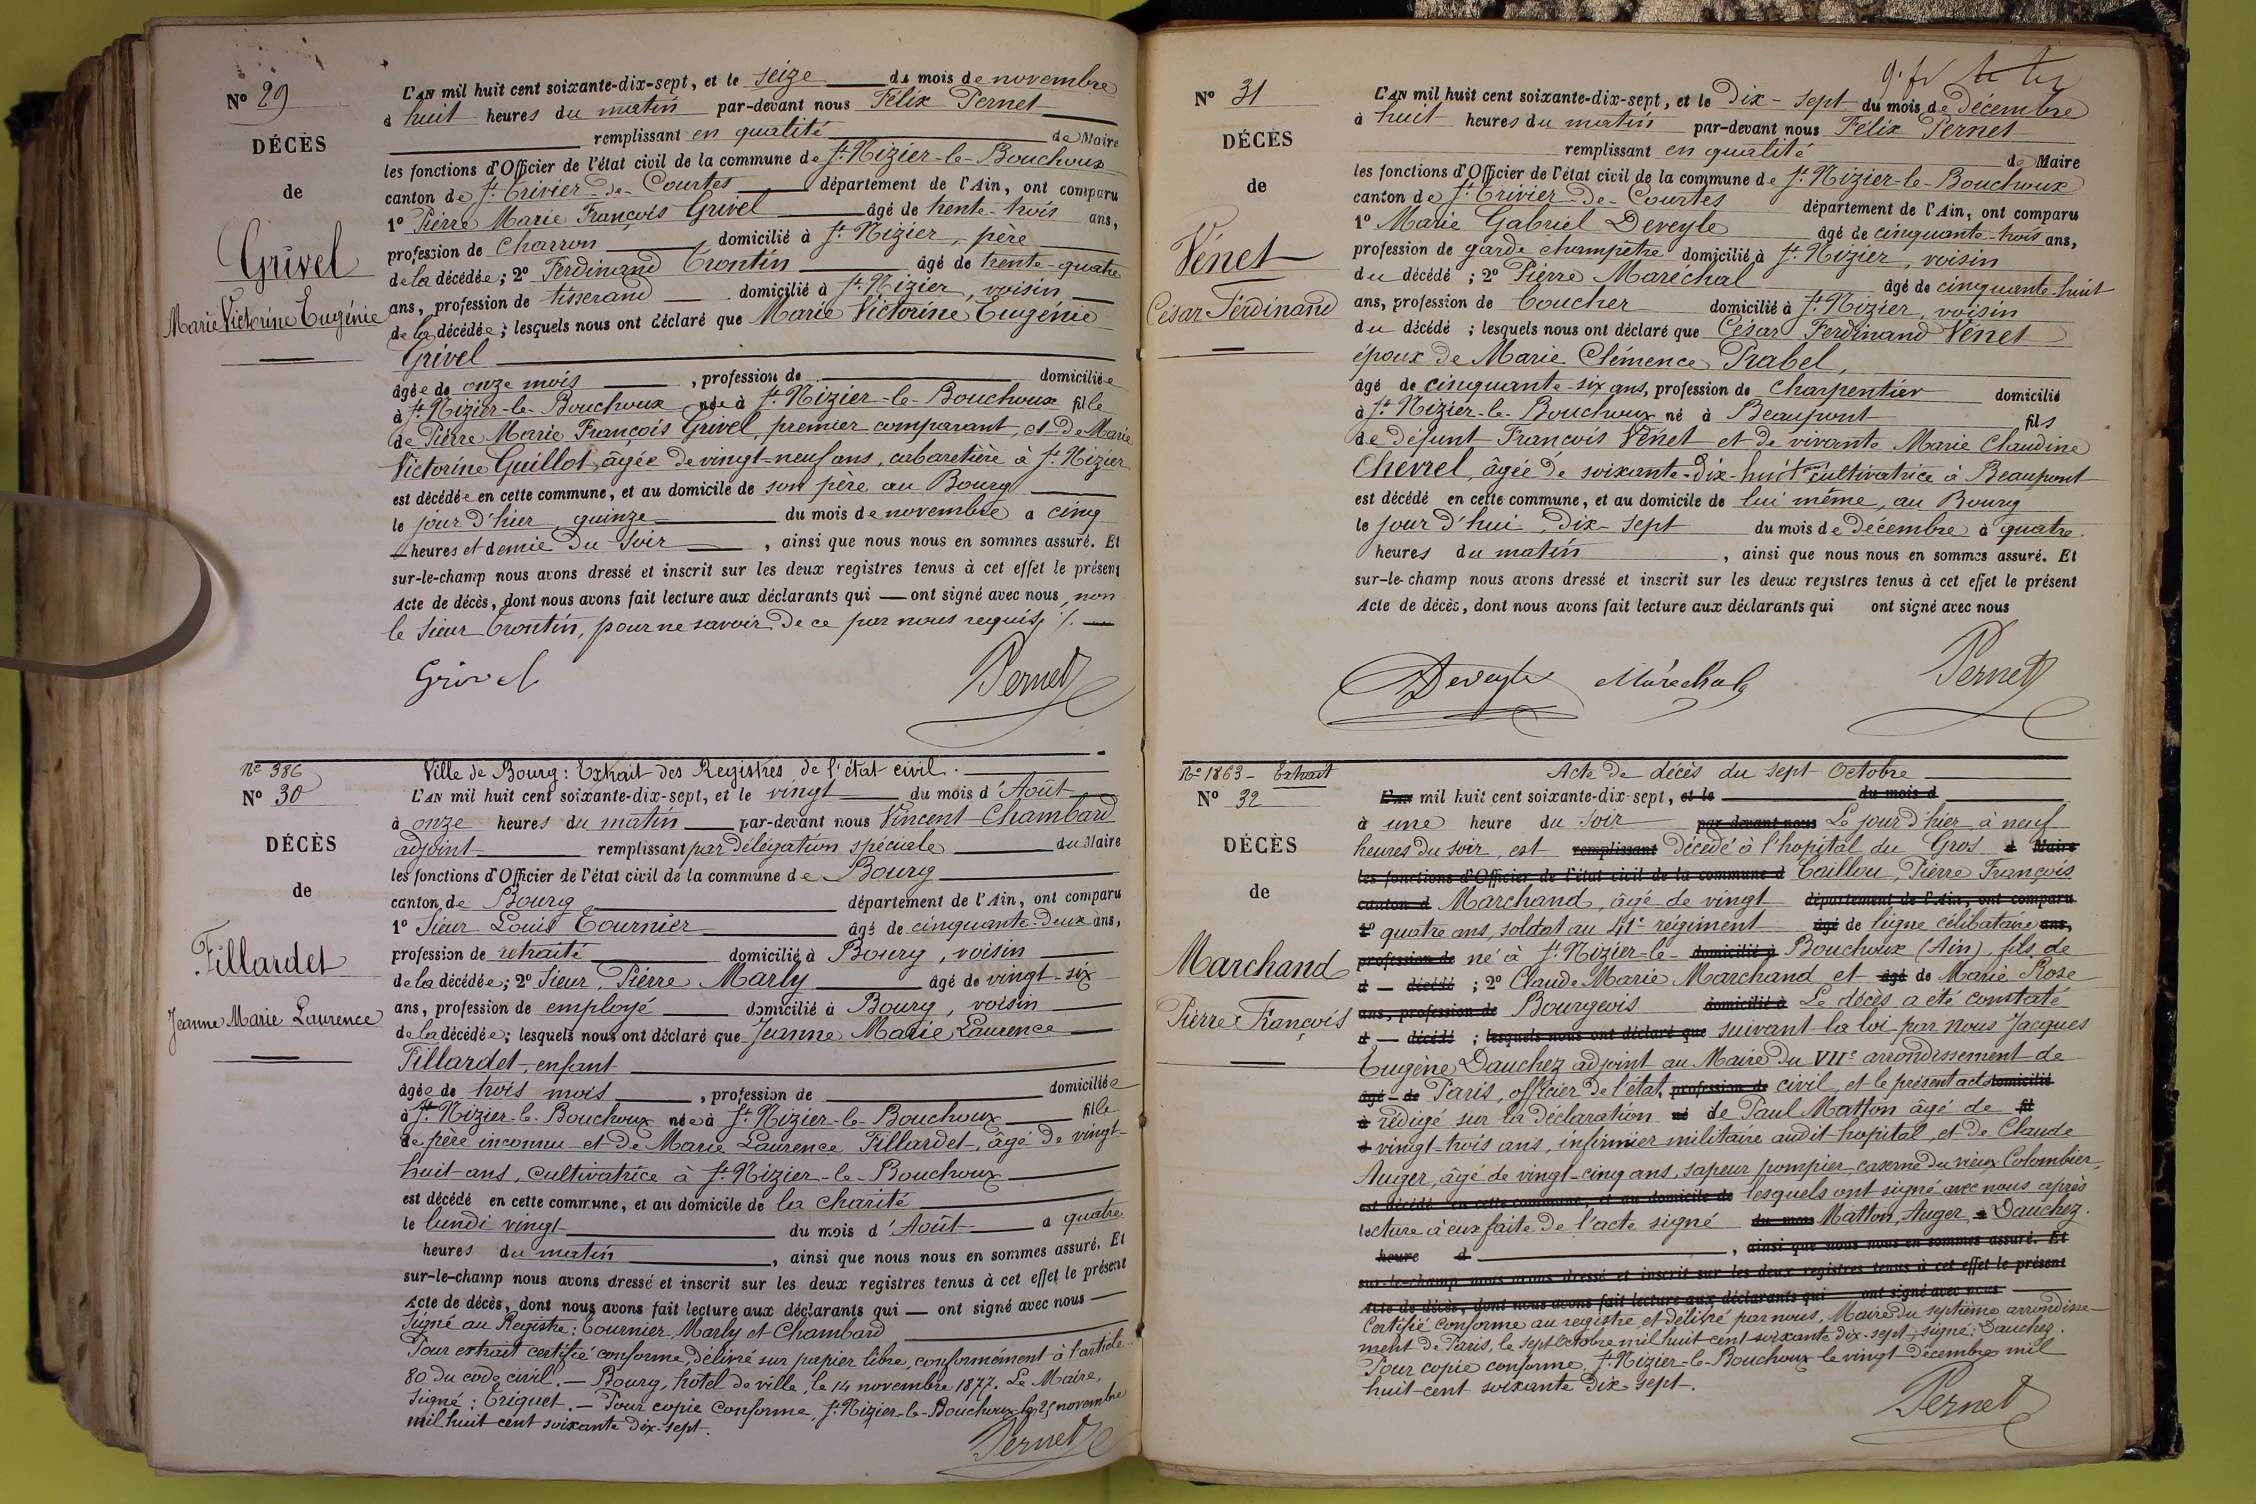 No 29
DÉCÈS
de
Grivel
Marie Victorine Eugénie
L'AN mil huit cent soixante-dix-sept, et le seize du mois de novembre
à huit heures du matin par-devant nous Félix Pernet
remplissant en qualité de Maire
les fonctions d'Officier de l'état civil de la commune de St Nizier-le-Bouchoux
canton de St Trivier-de-Courtes département de l'Ain, ont comparu
1o Pierre Marie François Grivel âgé de trente-trois ans,
profession de Charron domicilié à St Nizier, père
de la décédée; 2o Ferdinand Trontin âgé de trente-quatre
ans, profession de tisserand domicilié à St Nizier, voisin
de la décédée; lesquels nous ont déclaré que Marie Victorine Eugénie
Grivel
âgée de onze mois, profession de domiciliée
à St Nizier-le-Bouchoux née à St Nizier-le-Bouchoux fille
de Pierre Marie François Grivel, premier comparant, et de Marie
Victorine Guillot, âgée de vingt-neuf ans, cabaretière à St Nizier
est décédée en cette commune, et au domicile de son père au Bourg
le jour d'hier quinze du mois de novembre a cinq
heures et demie du soir, ainsi que nous nous en sommes assuré. Et
sur-le-champ nous avons dressé et inscrit sur les deux registres tenus à cet effet le présent
Acte de décès, dont nous avons fait lecture aux déclarants qui — ont signé avec nous, non
le sieur Trontin, pour ne savoir de ce par nous requis ./.
Grivel Pernet
No 386
No 30
DÉCÈS
de
Fillardet
Jeanne Marie Laurence
Ville de Bourg: Extrait des Registres de l'état civil.
L'AN mil huit cent soixante-dix-sept, et le vingt du mois d'Août
à onze heures du matin par-devant nous Vincent Chambard
adjoint remplissant par délégation spéciale du Maire
les fonctions d'Officier de l'état civil de la commune de Bourg
canton de Bourg département de l'Ain, ont comparu
1o Sieur Louis Tournier âgé de cinquante-deux ans,
profession de retraité domicilié à Bourg, voisin
de la décédée; 2o Sieur Pierre Marly âgé de vingt-six
ans, profession de employé domicilié à Bourg, voisin
de la décédée; lesquels nous ont déclaré que Jeanne Marie Laurence
Fillardet, enfant
âgée de trois mois, profession de domiciliée
à St Nizier-le-Bouchoux née à St Nizier-le-Bouchoux fille
de père inconnu et de Marie Laurence Fillardet, âgé de vingt-
huit ans, cultivatrice à St Nizier-le-Bouchoux
est décédé en cette commune, et au domicile de la charité
le lundi vingt du mois d'Août a quatre
heures du matin, ainsi que nous nous en sommes assuré. Et
sur-le-champ nous avons dressé et inscrit sur les deux registres tenus à cet effet le présent
Acte de décès, dont nous avons fait lecture aux déclarants qui — ont signé avec nous
Signé au Registre: Tournier, Marly et Chambard
Pour extrait certifié conforme, délivré sur papier libre, conformément à l'article
80 du code civil. — Bourg, hotel de ville, le 14 novembre 1877. Le Maire,
Signé: Triquet. — Pour copie Conforme, St Nizier-le-Bouchoux le 25 novembre
mil huit cent soixante dix-sept.
Pernet
No 31
DÉCÈS
de
Vénet
César Ferdinand
L'AN mil huit cent soixante-dix-sept, et le Dix-sept du mois de Décembre
à huit heures du matin par-devant nous Félix Pernet
remplissant en qualité de Maire
les fonctions d'Officier de l'état civil de la commune de St Nizier-le-Bouchoux
canton de St Trivier-de-Courtes département de l'Ain, ont comparu
1o Marie Gabriel Deveyle âgé de cinquante-trois ans,
profession de garde champêtre domicilié à St Nizier, voisin
du décédé; 2o Pierre Maréchal âgé de cinquante-huit
ans, profession de boucher domicilié à St Nizier, voisin
du décédé; lesquels nous ont déclaré que César Ferdinand Vénet
époux de Marie Clémence Prabel,
âgé de cinquante-six ans, profession de Charpentier domicilié
à St Nizier-le-Bouchoux né à Beaupont fils
de défunt François Vénet et de vivante Marie Claudine
Chevrel, âgée de soixante-dix-huit ans cultivatrice à Beaupont
est décédé en cette commune, et au domicile de lui même, au Bourg
le jour d'hui dix-sept du mois de Décembre à quatre
heures du matin, ainsi que nous nous en sommes assuré. Et
sur-le-champ nous avons dressé et inscrit sur les deux registres tenus à cet effet le présent
Acte de décès, dont nous avons fait lecture aux déclarants qui ont signé avec nous
Deveyle Maréchal Pernet
No 1863 - Extrait
No 32
DÉCÈS
de
Marchand
Pierre François
Acte de décès du sept Octobre
L'an mil huit cent soixante-dix-sept, et le du mois d
à une heure du soir par devant nous Le jour d'hier à neuf
heures du soir, est remplissant décédé à l'hopital du Gros d Maire
les fonctions d'Officier de l'état civil de la commune d Caillou, Pierre François
canton d Marchand, âgé de vingt département de l'Ain, ont comparu
1o quatre ans, soldat au 41e régiment âgé de ligne célibataire ans,
profession de né à St Nizier-le- domicilié à Bouchoux (Ain), fils de
d — décédé; 2o Claude Marie Marchand et âgé de Marie Rose
ans, profession de Bourgeois domicilié à Le décès a été constaté
d — décédé; lesquels nous ont déclaré que suivant la loi par nous Jacques
Eugène Dauchez adjoint au Maire du VIIe arrondissement de
âgé de Paris, officier de l'état, profession de civil, et le présent acte domicilié
à rédigé sur la déclaration né de Paul Matton âgé de fil
d vingt-trois ans, infirmier militaire audit hopital, et de Claude
Auger, âgé de vingt-cinq ans, sapeur pompier, caserne du vieux Colombier,
est décédé en cette commune, et au domicile de lesquels ont signé avec nous après
lecture à eux faite de l'acte signé du mois Matton, Auger, a Dauchez.
heure d, ainsi que nous nous en sommes assuré. Et
sur-le-champ nous avons dressé et inscrit sur les deux registres tenus à cet effet le présent
Acte de décès, dont nous avons fait lecture aux déclarants qui ont signé avec nous
Certifié conforme au registre et délivré par nous, Maire du septième arrondisse-
ment de Paris, le sept Octobre mil huit cent soixante dix-sept, signé: Dauchez.
Pour copie conforme, St Nizier-le-Bouchoux le vingt Décembre mil
huit-cent soixante Dix sept.
Pernet